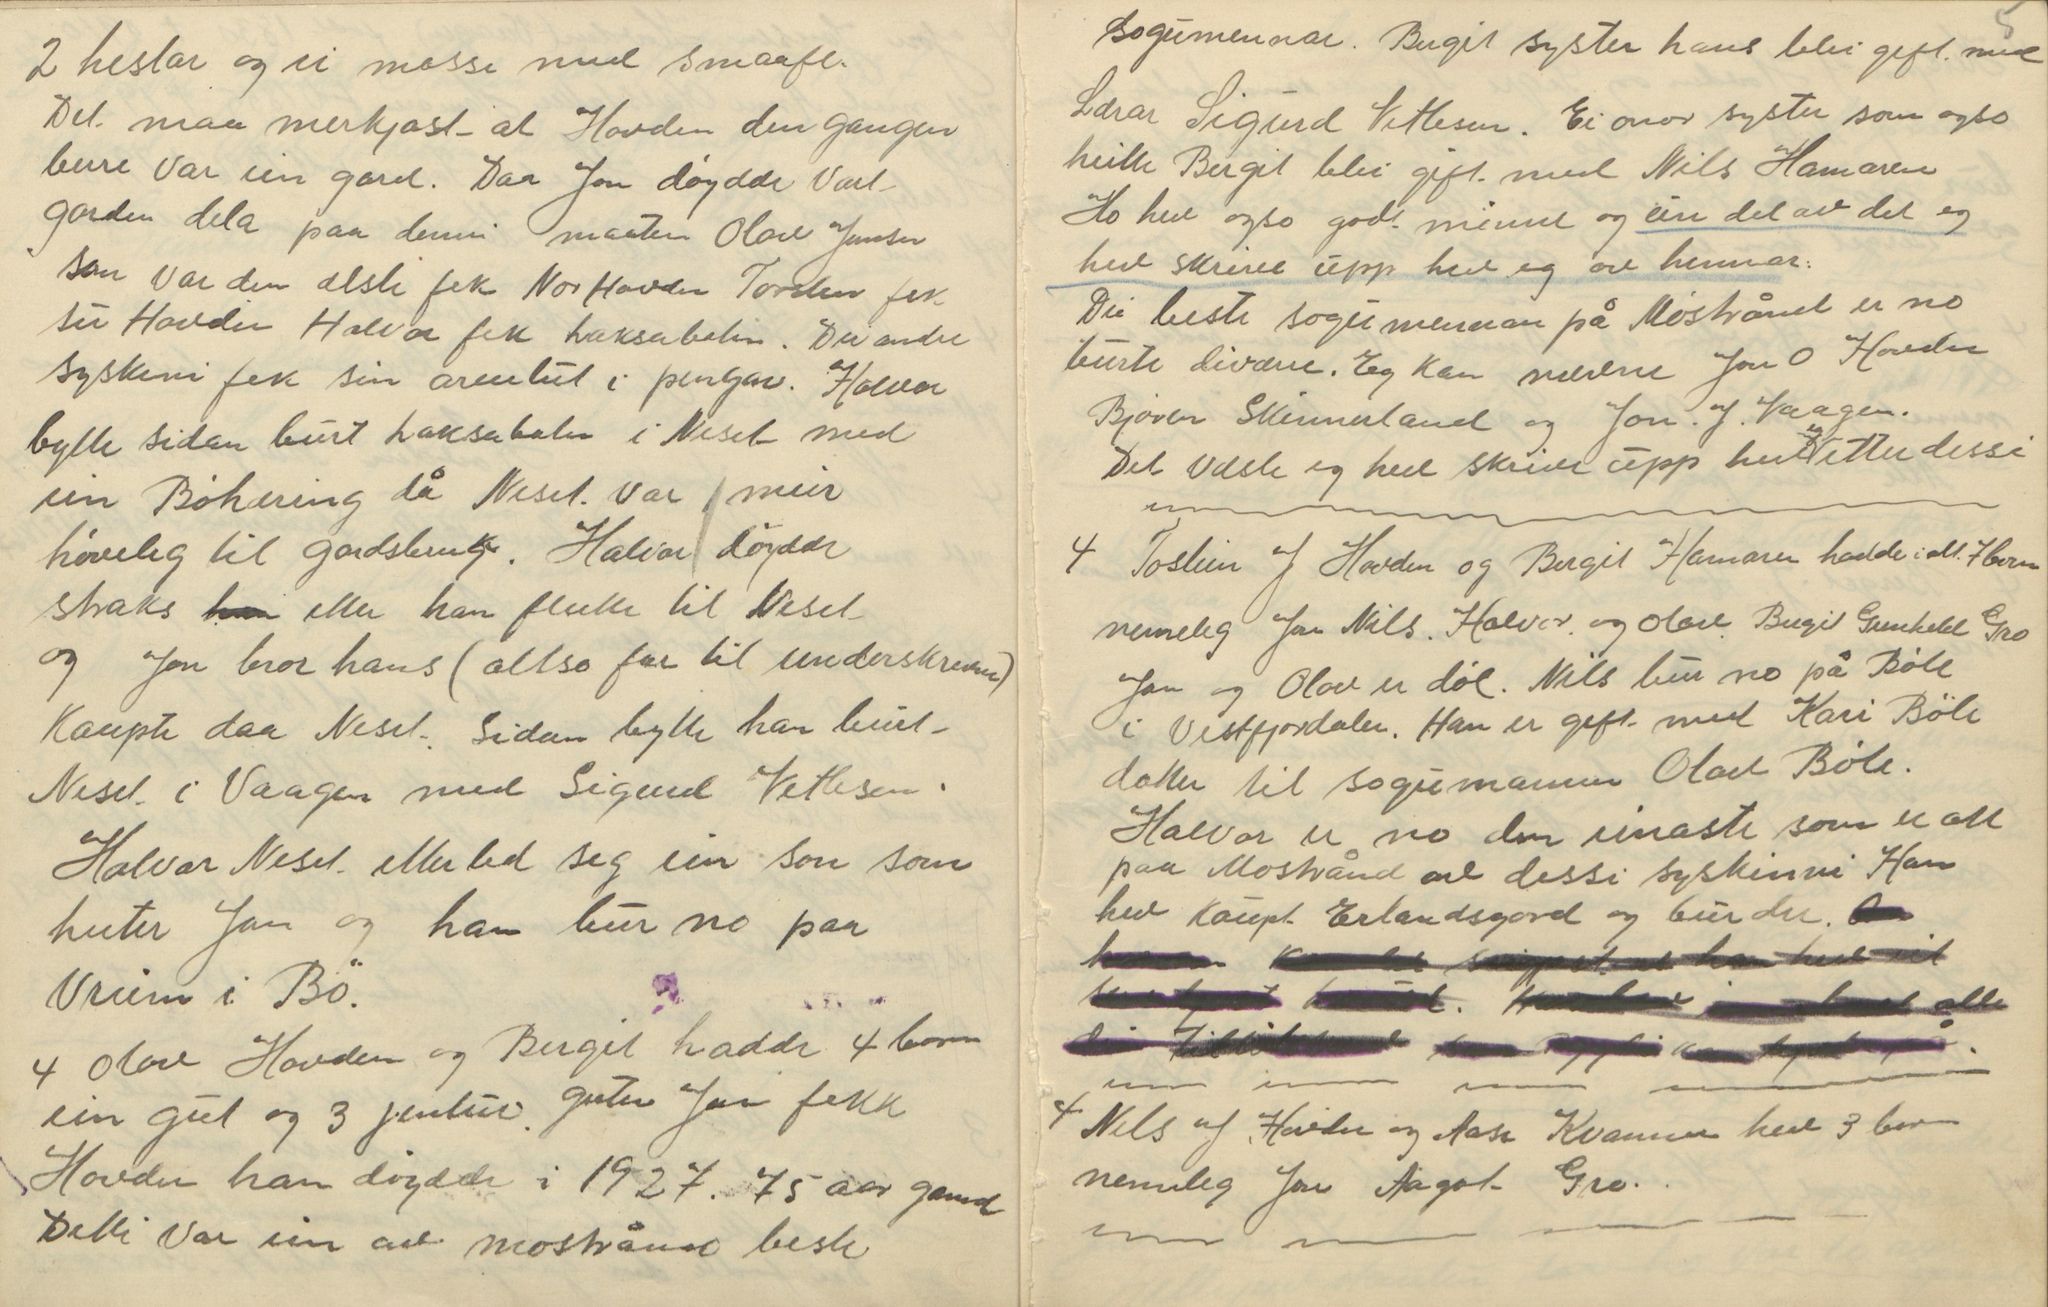 2 hestar og ei masse med smaafe.
Det maa merkjast at Hovden den gangen
bere var ein gard. Daa Jon döydde vart
garden dela paa denni maaten Olav Jonsen
son var den elste fek Nor Hovden Torstein fek
sú Hovden Halvor fek haksabolen. Dei andre
syskeni fek sin arvelut i pengar. Halvor
bytte sidan burt haksabolen i Neset med
ein Böhæring då Neset var meir
höveleg til gardsbruk. Halvor döydde
straks etter han flutte til Neset
og Jon bror hans (altso far til underskrevne)
Kaupte daa Neset. Sidan bytte han burt
Neset i Vaagen med Sigurd Vetlesen.
Halvor Neset etterled seg ein son som
heiter Jon og han bur no paa
Vreim i Bö.
4 Olav Hovden og Bergit hadde 4 born
ein gut og 3 jentur. guten Jon fekk
Hovden han döydde i 1927. 75 aar gamal
Detti var ein av mostrånd beste
5
Sogumennar. Bergit syster hans blei gift med
Lærar Sigurd Vetlesen. Ei onor syster som ogso
heitte Bergit blei gift med Nils Hamaren
Ho hev ogso godt minne og ein del av det eg
hev skrive upp hev eg av hennar.
Dei beste sogumennan på Möstrånd er no
burte diværre. Eg kan nevne Jon O Hovden
Björen Skinnerland og Jon. J. Vaagen.
Det væste eg hev skrive upp hev eg etter dessi
4 Tostein J Hovden og Bergit Hamaren hadde i alt 7 born
nemeleg Jon Nils. Halvor. og Olav. Bergit Gunhild Gro
Jon og Olav er döe. Nils bur no på Böle
i Vestfjordalen. Han er gift med Kari Böle
dotter til sogumannen Olav Böle.
Halvor er no den einaste som er att
paa Mostrånd av dessi syskinni Han
hev kaupt Erlandsgard og bur der.
alle
4 Nils J Hovden og Aase Kvammen hev 3 born
nemeleg Jon Aagot Gro.